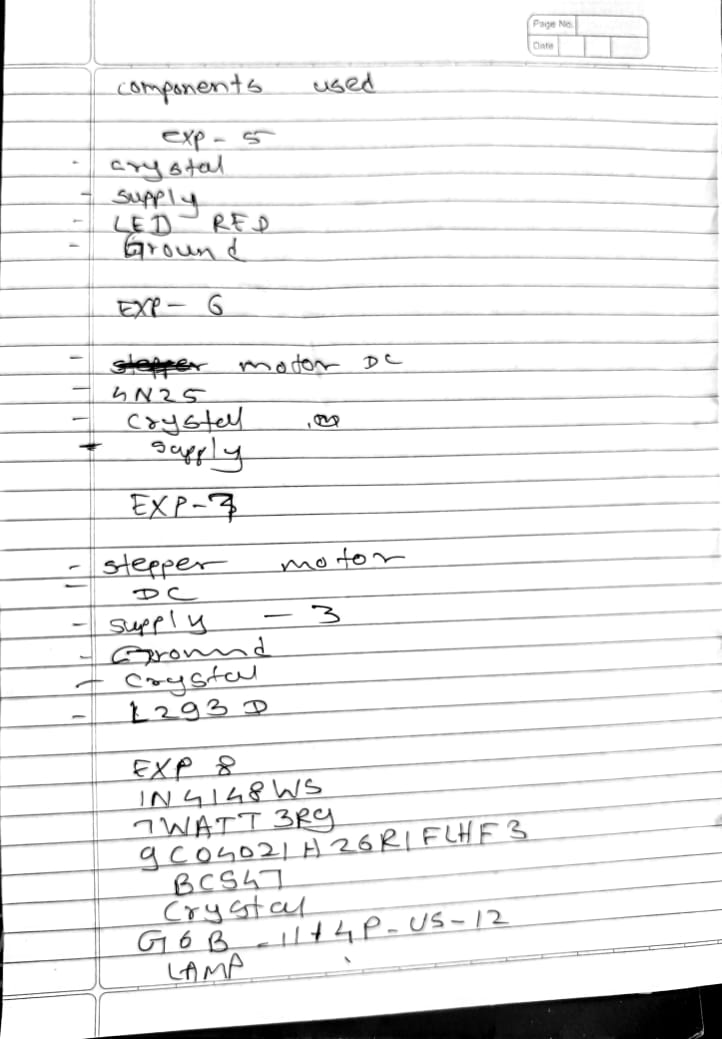 Page No.
Date
components used
exp - 5
- crystal
- supply
- LED RED
- Ground
EXP - 6
- motor DC
- 4N25
- crystal
- supply
EXP - 7
- stepper motor
- DC
- supply - 3
- Ground
- crystal
- L293D
EXP 8
IN4148WS
7WATT3R9
9C04021H26R1FLHF3
BC547
Crystal
G6B-1174P-US-12
LAMP